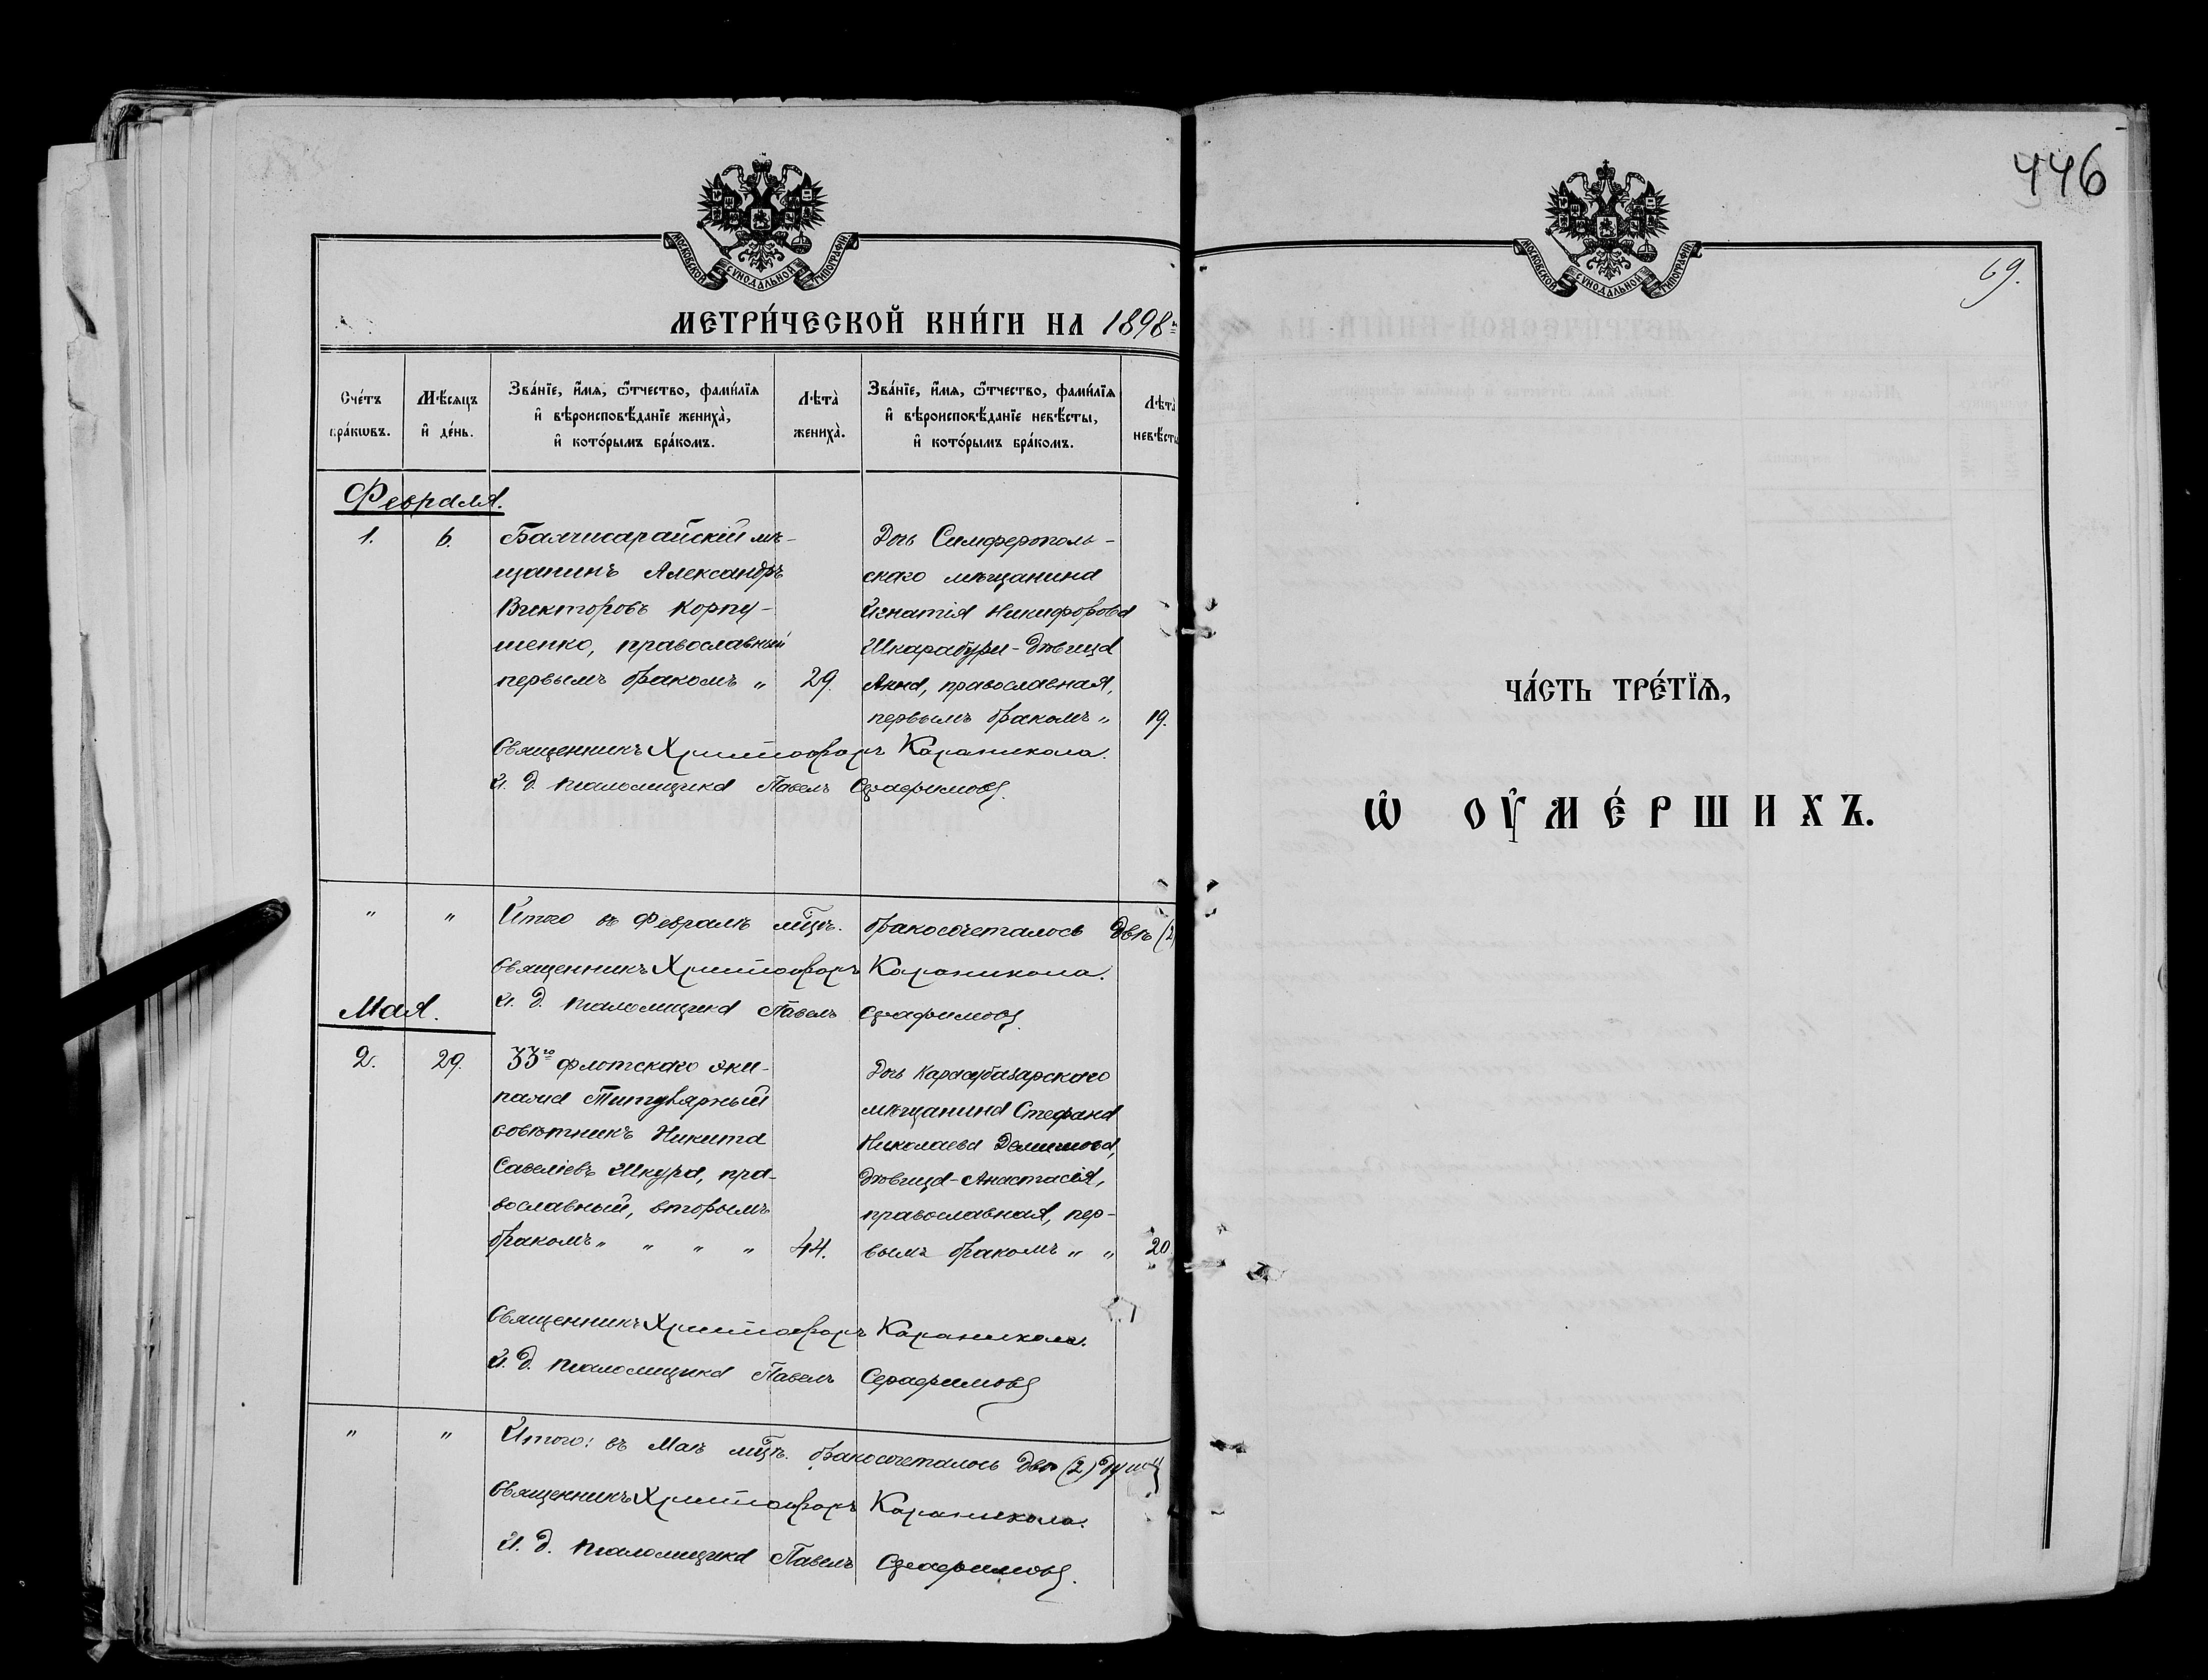 МОСКОВСКОЙ СУНОДАЛЬНОЙ ТИПОГРАФІИ
МЕТРИ́ЧЕСКОЙ КНИ́ГИ НА 1898 г.
Сче́тъ бра́кωвъ.
Мѣ́сяцъ и҆ де́нь.
Зва́нїе, и҆́мѧ, ѻ҆́тчество, фами́лїѧ
и҆ вѣроисповѣ́данїе жениха̀,
и҆ кото́рымъ бра́комъ.
Лѣта̀
жениха̀.
Зва́нїе, и҆́мѧ, ѻ҆́тчество, фами́лїѧ
и҆ вѣроисповѣ́данїе невѣ́сты,
и҆ кото́рымъ бра́комъ.
Лѣта̀
невѣ́сты
Февраля.
1.
6.
Бахчисарайскій мѣ-
щанинъ Александръ
Викторовъ Корпу-
шенко, православный
первымъ бракомъ „
29.
Дочь Симферополь-
скаго мѣщанина
Игнатія Никифорова
Шкарабуры - дѣвица
Анна, православная,
первымъ бракомъ „
19.
Священникъ Христофоръ Караникола.
И. д. псаломщика Павелъ Серафимовъ.
„ „ Итого въ Февралѣ мцѣ. бракосочеталось двѣ (2
Священникъ Христофоръ Караникола.
И. д. псаломщика Павелъ Серафимовъ.
Мая.
2.
29.
33го флотскаго эки-
пажа Титулярный
совѣтникъ Никита
Савеліевъ Шкура, пра-
вославный, вторымъ
бракомъ „ „ „ „
44.
Дочь Карасубазарскаго
мѣщанина Стефана
Николаева
дѣвица - Анастасія,
православная, пер-
вымъ бракомъ „ „
20
Священникъ Христофоръ Караникола.
И. д. псаломщика Павелъ Серафимовъ
„ „ Итого: въ Маѣ мцѣ. бракосочеталось двѣ (2) души
Священникъ Христофоръ Караникола.
И. д. псаломщика Павелъ Серафимовъ.
446
МОСКОВСКОЙ СУНОДАЛЬНОЙ ТИПОГРАФІИ
69.
ЧА́СТЬ ТРЕ́ТЇѦ,
Ѡ҆ ОУ҆МЕ́РШИХЪ.